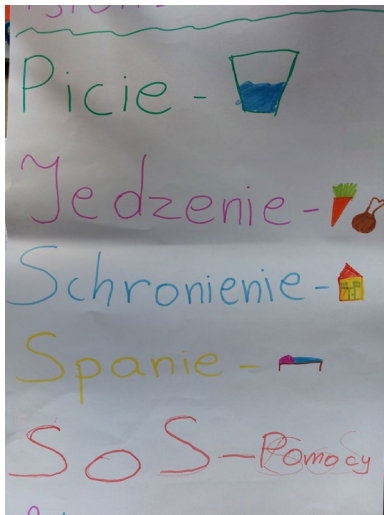 Picie -
Jedzenie -
Schronienie -
Spanie -
SOS - Pomocy